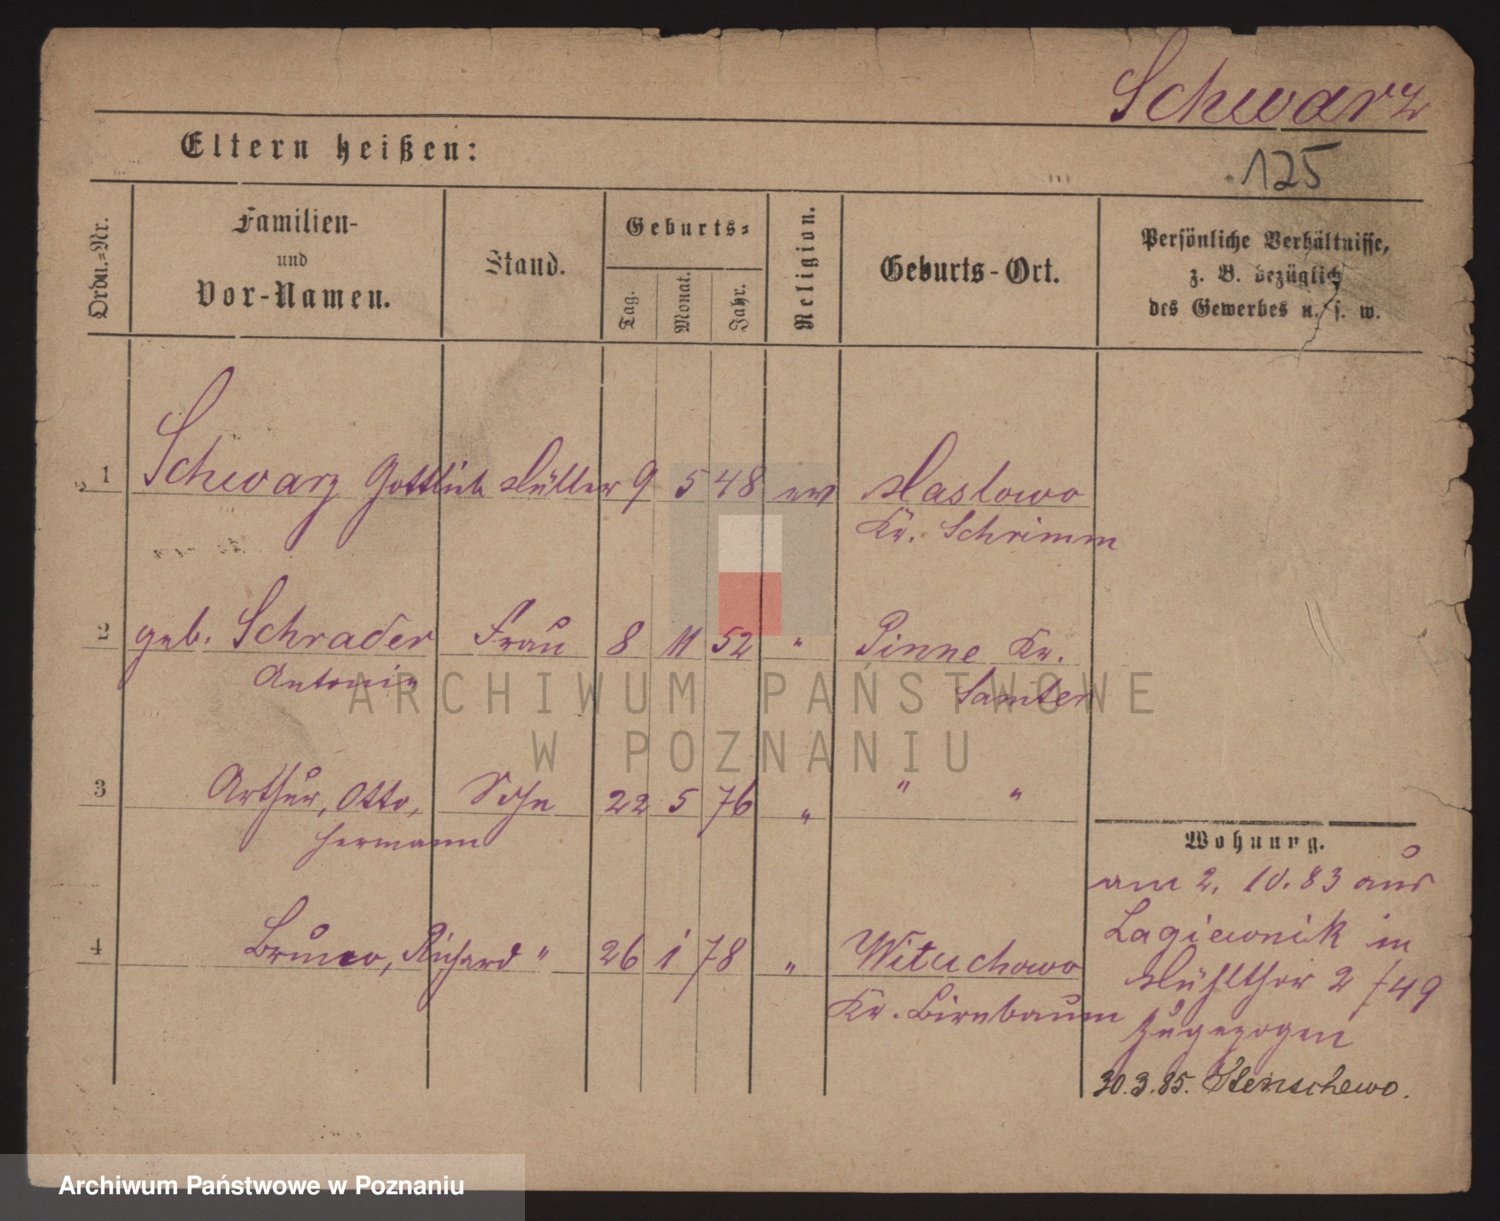 Schwarz
125
Eltern heißen:
Ordn.-Nr.
Familien-
und
Vor-Namen.
Stand.
Geburts-
Tag.
Monat.
Jahr.
Religion.
Geburts-Ort.
Persönliche Verhältnisse,
z. B. bezüglich
des Gewerbes u. s. w.
1 Schwarz Gottlieb Müller 9 5 48 ev Maslowo
Kr. Schrimm
2 geb. Schrader Frau 8 11 52 " Pinne Kr.
Antonie Samter
3 Arthur, Otto, Sohn 22 5 76 " " "
Hermann
4 Bruno, Richard " 26 1 78 " Wituchowo
Kr. Birnbaum
Wohnung.
am 2. 10. 83 aus
Lagiewnik in
Mühlthor 2 /49
zugezogen
30.3.85. Stenschewo.
ARCHIWUM PAŃSTWOWE
W POZNANIU
Archiwum Państwowe w Poznaniu